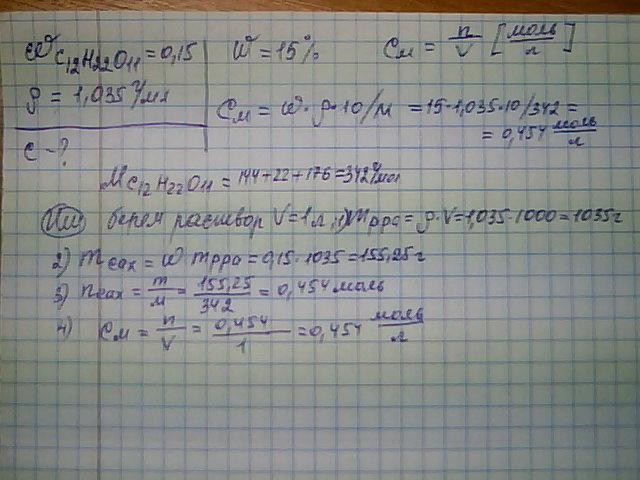 ω C12H22O11 = 0,15
W = 15%
Cм = n/V [моль/л]
ρ = 1,035 г/мл
Cм = ω · ρ · 10/M = 15 · 1,035 · 10/342 =
= 0,454 моль/л
C - ?
M C12H22O11 = 144 + 22 + 176 = 342 г/мол
Или берем раствор V = 1л, 1) m рра = ρ · V = 1,035 · 1000 = 1035 г
2) m сах = ω m рра = 0,15 · 1035 = 155,25 г
3) n сах = m/M = 155,25/342 = 0,454 моль
4) Cм = n/V = 0,454/1 = 0,454 моль/л